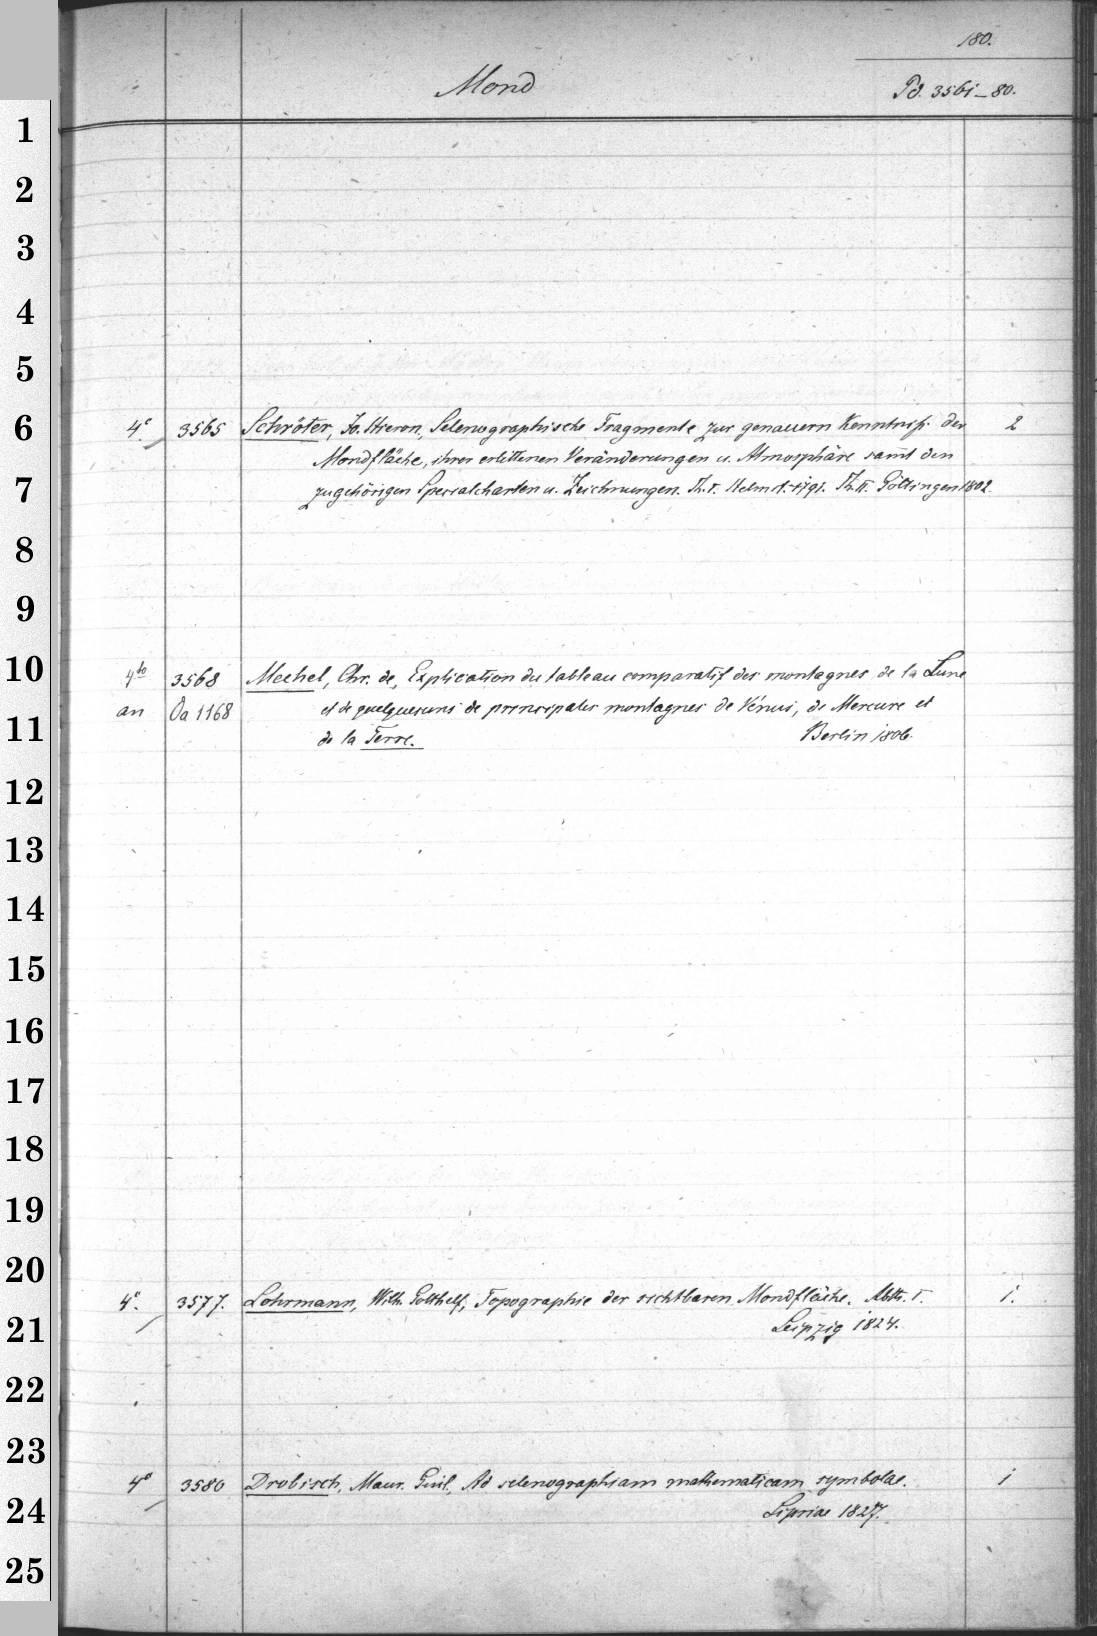 180.
Mond
Pd. 3561-80.
1
2
3
4
5
6
4° 3565 Schröter, Jo. Hieron., Selenographische Fragmente zur genauern Kenntniß der 2
Mondfläche, ihrer erlittenen Veränderungen u. Atmosphäre sam̅t den
7
zugehörigen Specialcharten u. Zeichnungen. Th. I. Helmst. 1791. Th. II. Göttingen 1802
8
9
10
4to 3568 Mechel, Chr. de, Explication du tableau comparatif des montagnes de la Lune
an Oa 1168 et de quelquesuns de principales montagnes de Vénus, de Mercure et
11
de la Terre. Berlin 1806.
12
13
14
15
16
17
18
19
20
4°. 3577. Lohrmann, Wilh. Gotthelf, Topographie der sichtbaren Mondfläche. Abth. I. 1.
21
Leipzig 1824.
22
23
4° 3580 Drobisch, Maur. Guil., Ad selenographiam mathematicam symbolae. 1
24
Lipsiae 1827.
25